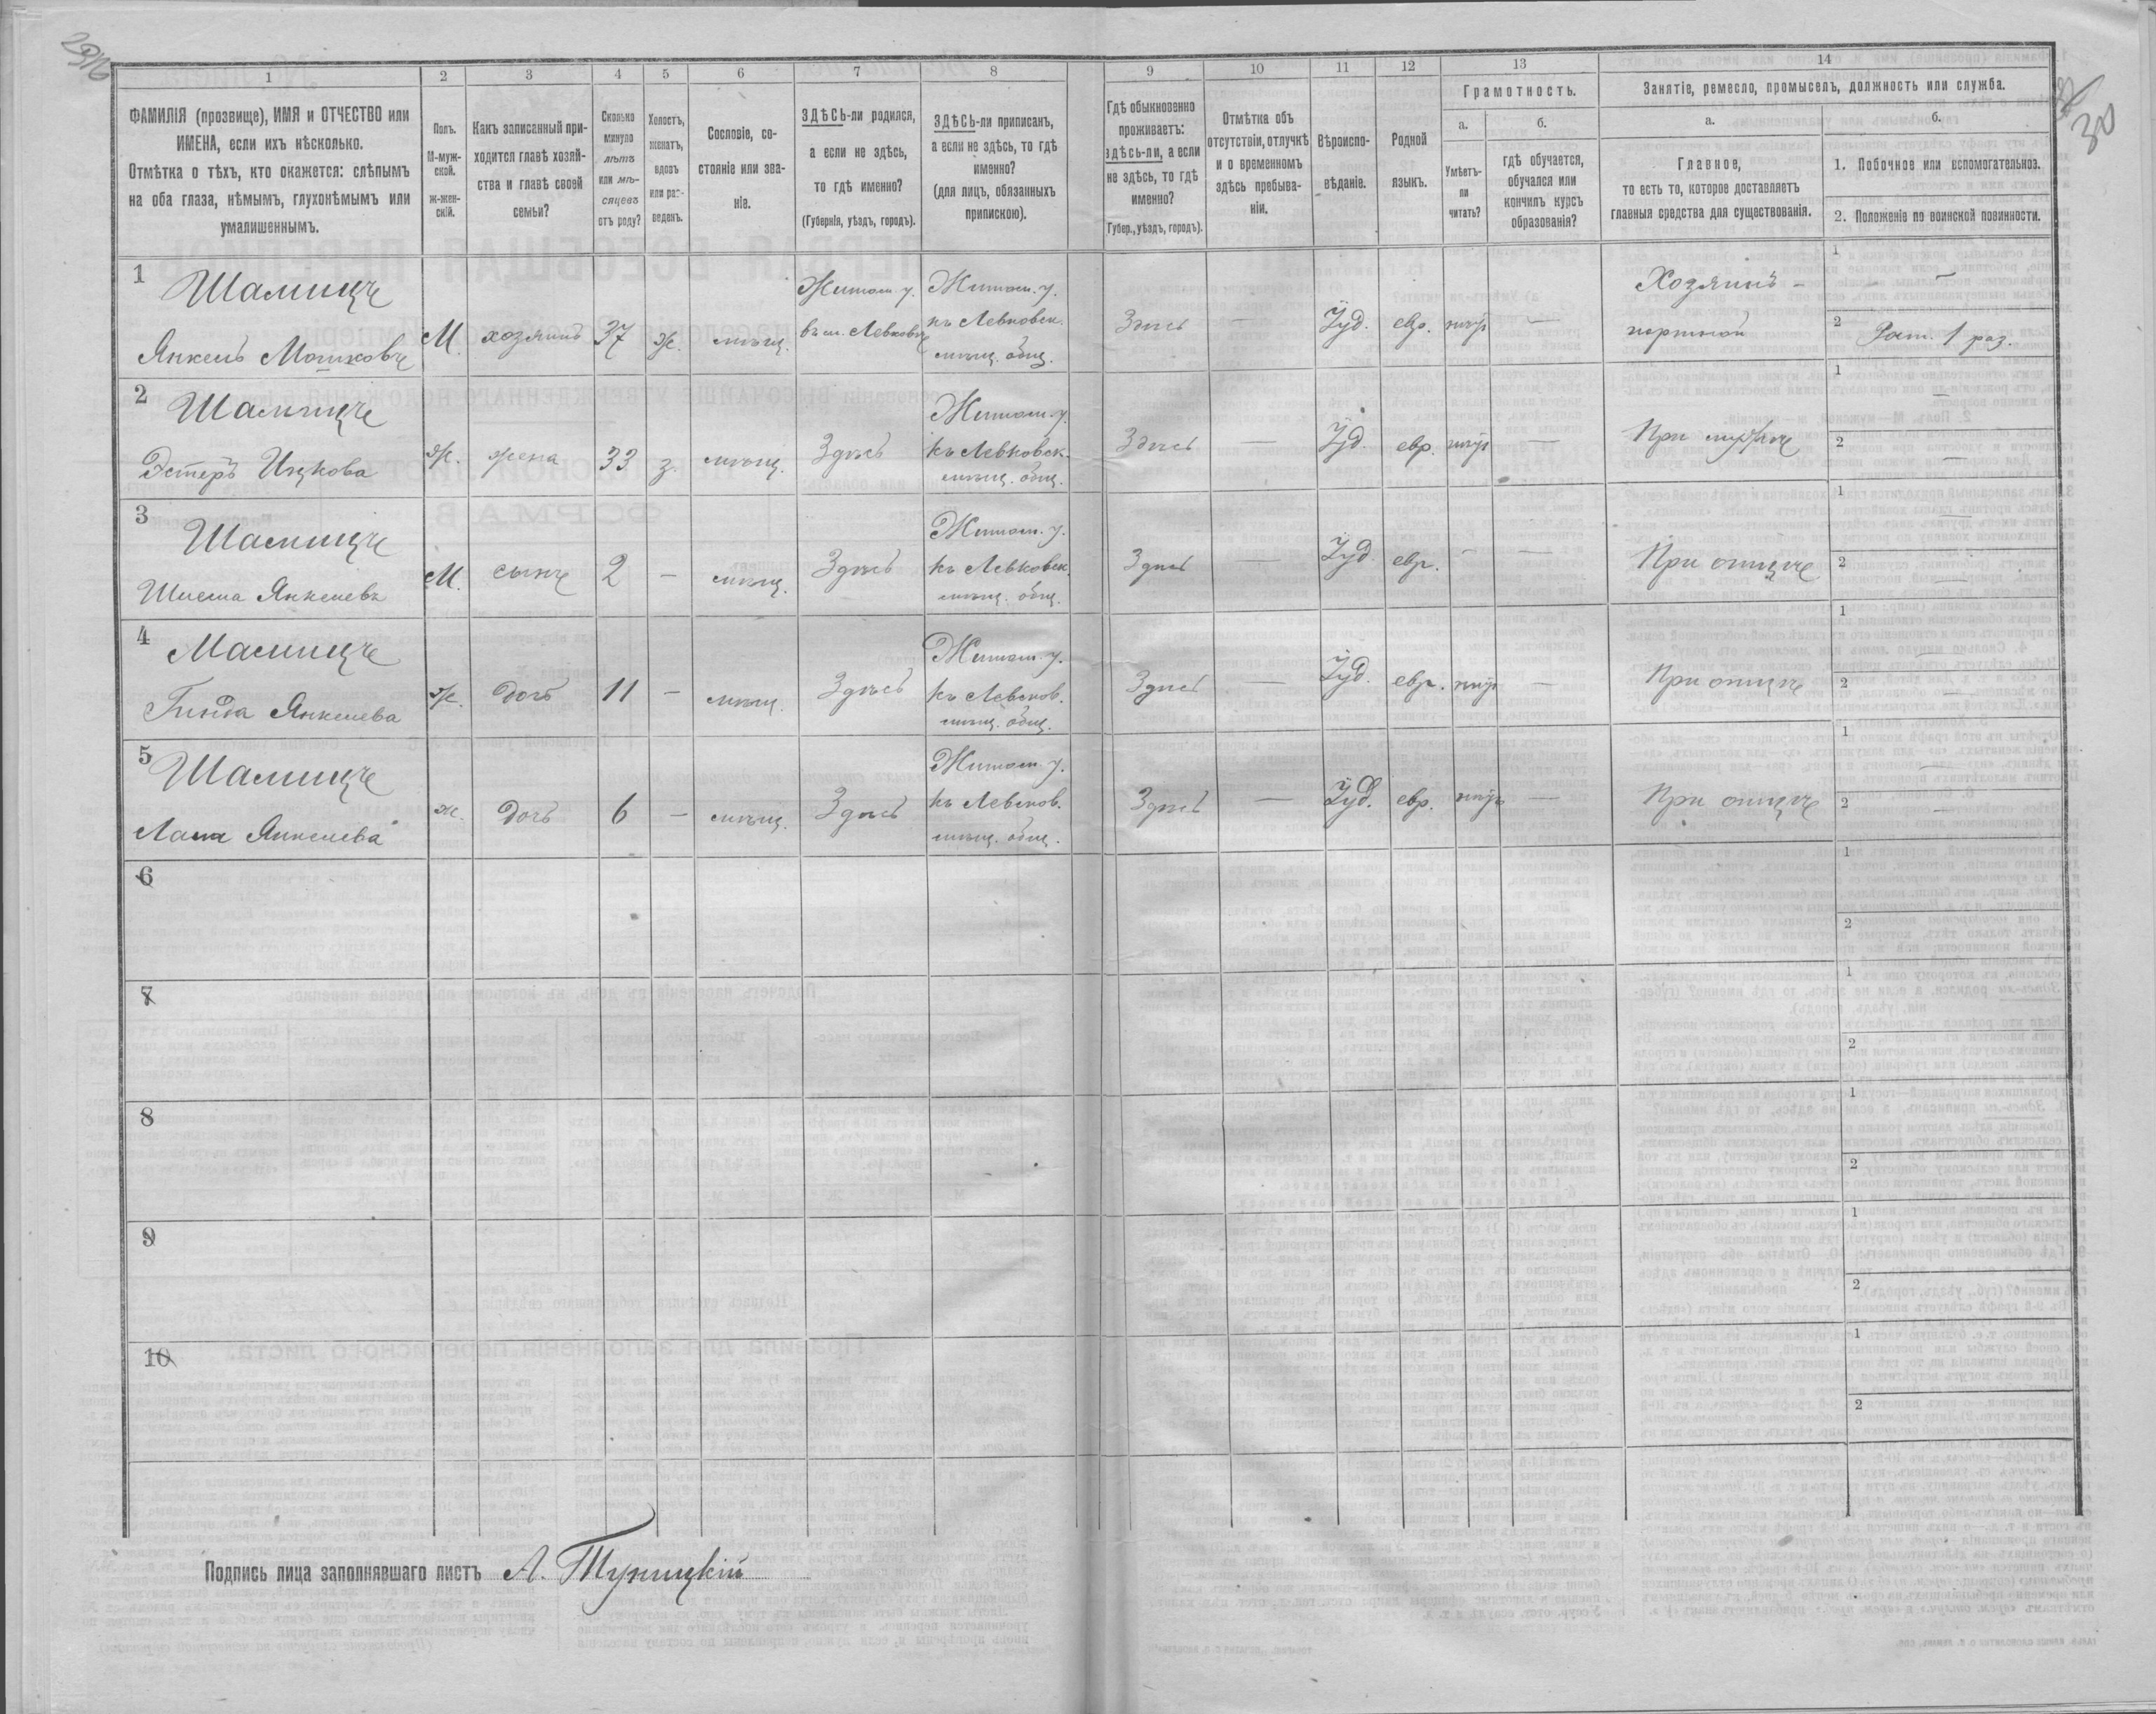 1 2 3 4 5 6 7 8 9 10 11 12 13 14
ФАМИЛІЯ (прозвище), ИМЯ и ОТЧЕСТВО или
ИМЕНА, если ихъ нѣсколько.
Отмѣтка о тѣхъ, кто окажется: слѣпымъ
на оба глаза, нѣмымъ, глухонѣмымъ или
умалишеннымъ.
Полъ.
М-муж-
ской.
ж-жен-
скій.
Какъ записанный при-
ходится главѣ хозяй-
ства и главѣ своей
семьи?
Сколько
минуло
лѣтъ
или мѣ-
сяцевъ
отъ роду?
Холостъ,
женатъ,
вдовъ
или раз-
веденъ.
Сословіе, со-
стояніе или зва-
ніе.
ЗДѢСЬ-ли родился,
а если не здѣсь,
то гдѣ именно?
(Губернія, уѣздъ, городъ).
ЗДѢСЬ-ли приписанъ,
а если не здѣсь, то гдѣ
именно?
(для лицъ, обязанныхъ
припискою).
Гдѣ обыкновенно
проживаетъ:
здѣсь-ли, а если
не здѣсь, то гдѣ
именно?
(Губер., уѣздъ, городъ).
Отмѣтка объ
отсутствіи, отлучкѣ
и о временномъ
здѣсь пребыва-
ніи.
Вѣроиспо-
вѣданіе.
Родной
языкъ.
Грамотность.
а.
Умѣетъ-
ли
читать?
б.
гдѣ обучается,
обучался или
кончилъ курсъ
образованія?
Занятіе, ремесло, промыселъ, должность или служба.
а.
Главное,
то есть то, которое доставляетъ
главныя средства для существованія.
б.
1. Побочное или вспомогательное.
2. Положеніе по воинской повинности.
30
1
Шамицъ
Янкель Мошковъ
М. хозяинъ 37 ж. мѣщ.
Житом. у.
въ м. Левковъ
Житом. у.
къ Левковск.
мѣщ. общ.
Здѣсь — Іуд. евр. —
Хозяинъ -
портной
1 —
2 Рат. 1 раз.
2
Шамицъ
Эстеръ Ицкова
Ж. жена 33 з. мѣщ. Здѣсь
Житом. у.
къ Левковск.
мѣщ. общ.
Здѣсь — Іуд. евр. —
При мужѣ
1 —
2 —
3
Шамицъ
Шлема Янкелевъ
М. сынъ 2 — мѣщ. Здѣсь
Житом. у.
къ Левковск.
мѣщ. общ.
Здѣсь — Іуд. евр. — —
При отцѣ
1 —
2 —
4
Шамицъ
Гинда Янкелева
Ж. дочь 11 — мѣщ. Здѣсь
Житом. у.
къ Левков.
мѣщ. общ.
Здѣсь — Іуд. евр. —
При отцѣ
1 —
2 —
5
Шамицъ
Янкелева
ж. дочь 6 — мѣщ. Здѣсь
Житом. у.
къ Левков.
мѣщ. общ.
Здѣсь — Іуд. евр. —
При отцѣ
1 —
2 —
6
1
2
7
1
2
8
1
2
9
1
2
10
1
2
Подпись лица заполнявшаго листъ А. Туницкій